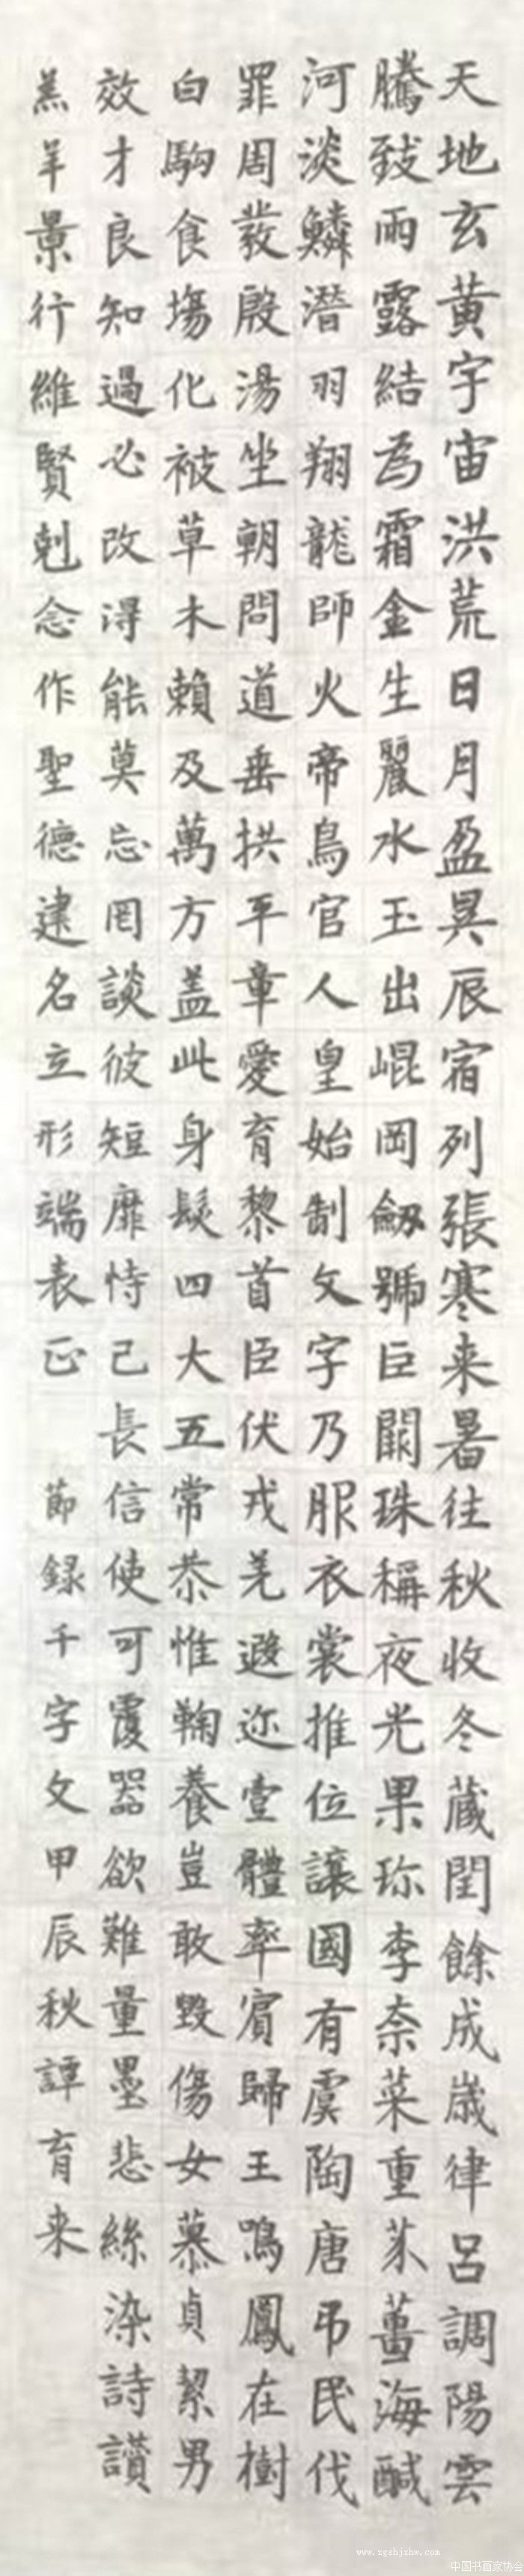 天地玄黄宇宙洪荒日月盈昃辰宿列張寒来暑往秋收冬蔵閏餘成嵗律呂調陽雲
騰致雨露結為霜金生麗水玉出崐岡劔號巨闕珠稱夜光果珎李柰菜重芥薑海醎
河淡鱗潛羽翔龍師火帝鳥官人皇始制文字乃服衣裳推位讓國有虞陶唐弔民伐
罪周發殷湯坐朝問道垂拱平章愛育黎首臣伏戎羌遐迩壹體率賓歸王鳴鳳在樹
白駒食場化被草木賴及萬方盖此身髮四大五常恭惟鞠養豈敢毀傷女慕貞絜男
效才良知過必改得能莫忘罔談彼短靡恃己長信使可覆器欲難量墨悲絲染詩讚
羔羊景行維賢剋念作聖德建名立形端表正 節録千字文甲辰秋譚育来
www.zgshjshw.com
中国书画家协会